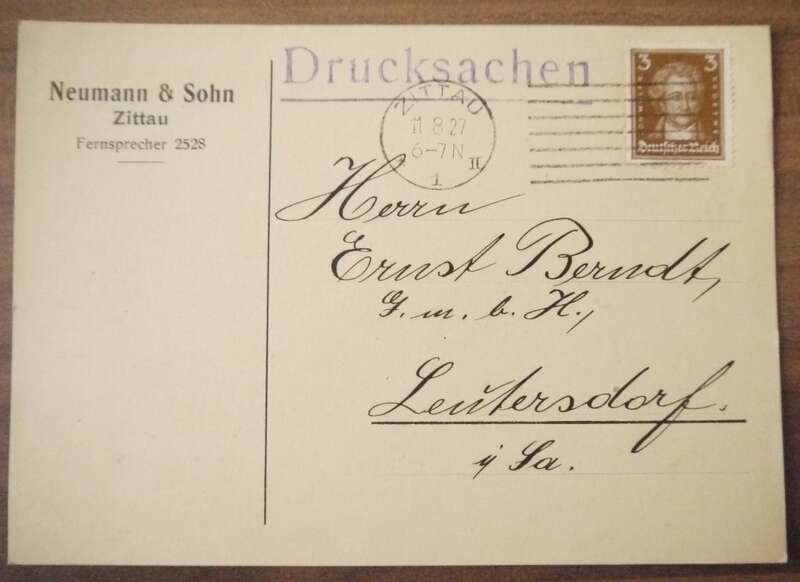 Neumann & Sohn
Zittau
Fernsprecher 2528
Drucksachen
ZITTAU
11 8 27
6-7 N
II
1
3 3
Deutsches Reich
Herrn
Ernst Berndt,
G. m. b. H.,
Leutersdorf.
i/ Sa.